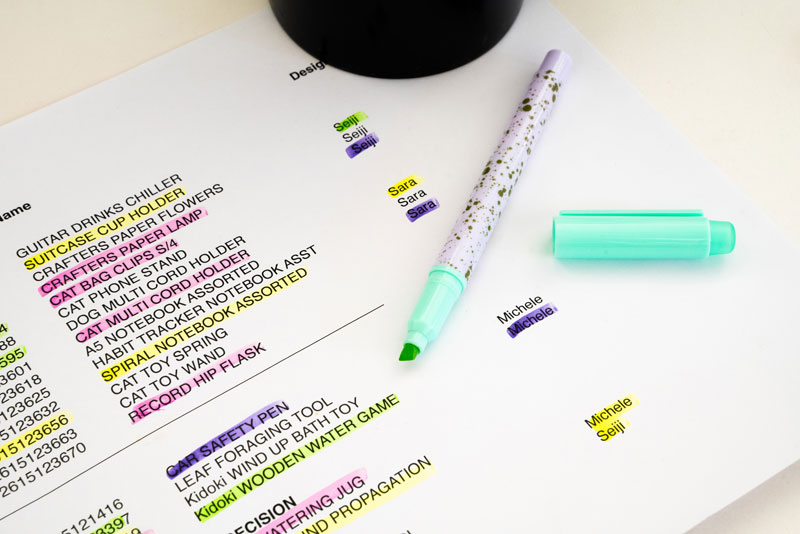 Name
GUITAR DRINKS CHILLER
SUITCASE CUP HOLDER
CRAFTERS PAPER FLOWERS
CRAFTERS PAPER LAMP
CAT BAG CLIPS S/4
CAT PHONE STAND
DOG MULTI CORD HOLDER
CAT MULTI CORD HOLDER
A5 NOTEBOOK ASSORTED
HABIT TRACKER NOTEBOOK ASST
SPIRAL NOTEBOOK ASSORTED
CAT TOY SPRING
CAT TOY WAND
RECORD HIP FLASK
CAR SAFETY PEN
LEAF FORAGING TOOL
Kidoki WIND UP BATH TOY
Kidoki WOODEN WATER GAME
ECISION
WATERING JUG
ND PROPAGATION
4
88
595
3601
23618
123625
5123632
15123656
615123663
2615123670
5121416
23397
Design
Seiji
Seiji
Seiji
Sara
Sara
Sara
Michele
Michele
Michele
Seiji